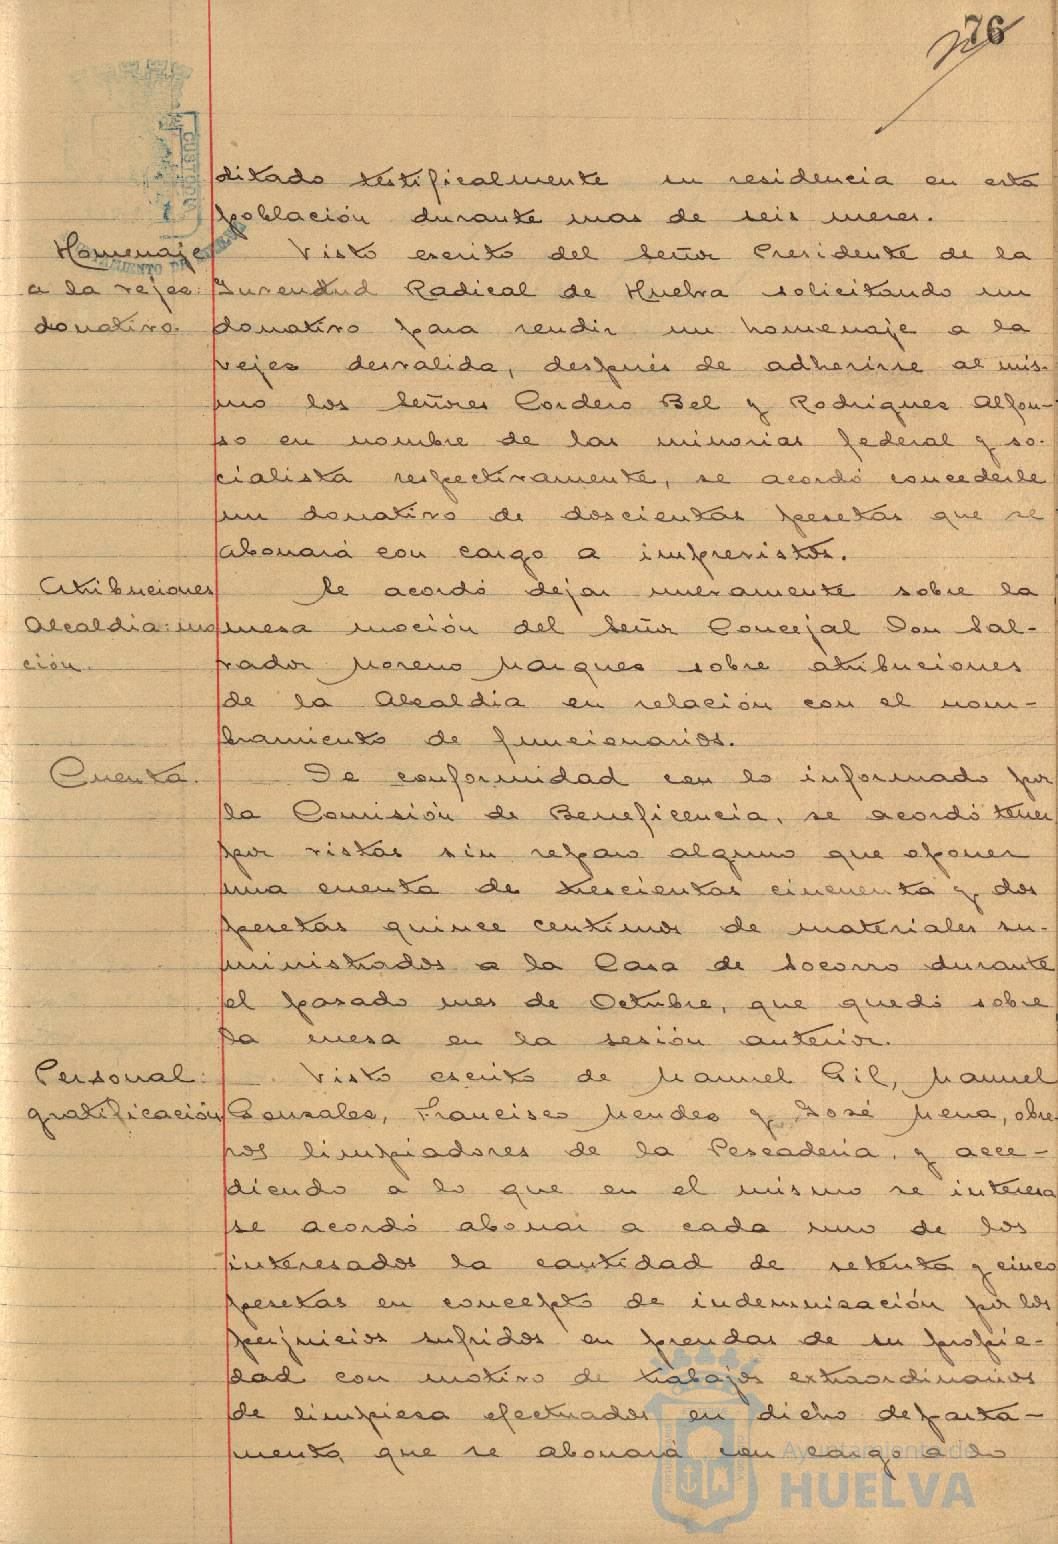 76
ditado testificalmente su residencia en esta
población durante mas de seis meses.
Homenaje
a la vejez:
donativo.
Visto escrito del Señor Presidente de la
Juventud Radical de Huelva solicitando un
donativo para rendir un homenaje a la
vejez desvalida, después de adherirse al mis-
mo los Señores Cordero Bel y Rodriguez Alfon-
so en nombre de las minorias federal y so-
cialista respectivamente, se acordó concederle
un donativo de doscientas pesetas que se
abonará con cargo a imprevistos.
Atribuciones
Alcaldia: mo
ción.
Se acordó dejar nuevamente sobre la
mesa moción del Señor Concejal Don Sal-
vador Moreno Marquez sobre atribuciones
de la Alcaldia en relación con el nom-
bramiento de funcionarios.
Cuenta.
De conformidad con lo informado por
la Comisión de Beneficencia, se acordó tener
por vistas sin reparo alguno que oponer
una cuenta de trescientas cincuenta y dos
pesetas quince centimos de materiales su-
ministrados a la Casa de Socorro durante
el pasado mes de Octubre, que quedó sobre
la mesa en la sesión anterior.
Personal:
gratificación
Visto escrito de Manuel Gil, Manuel
Gonzales, Francisco Mendez y José Mena, obre-
ros limpiadores de la Pescaderia, y acce-
diendo a lo que en el mismo se interesa
se acordó abonar a cada uno de los
interesados la cantidad de setenta y cinco
pesetas en concepto de indemnización por los
perjuicios sufridos en prendas de su propie-
dad con motivo de trabajos extraordinarios
de limpieza efectuados en dicho departa-
mento, que se abonará con cargo a lo
Ayuntamiento de
HUELVA